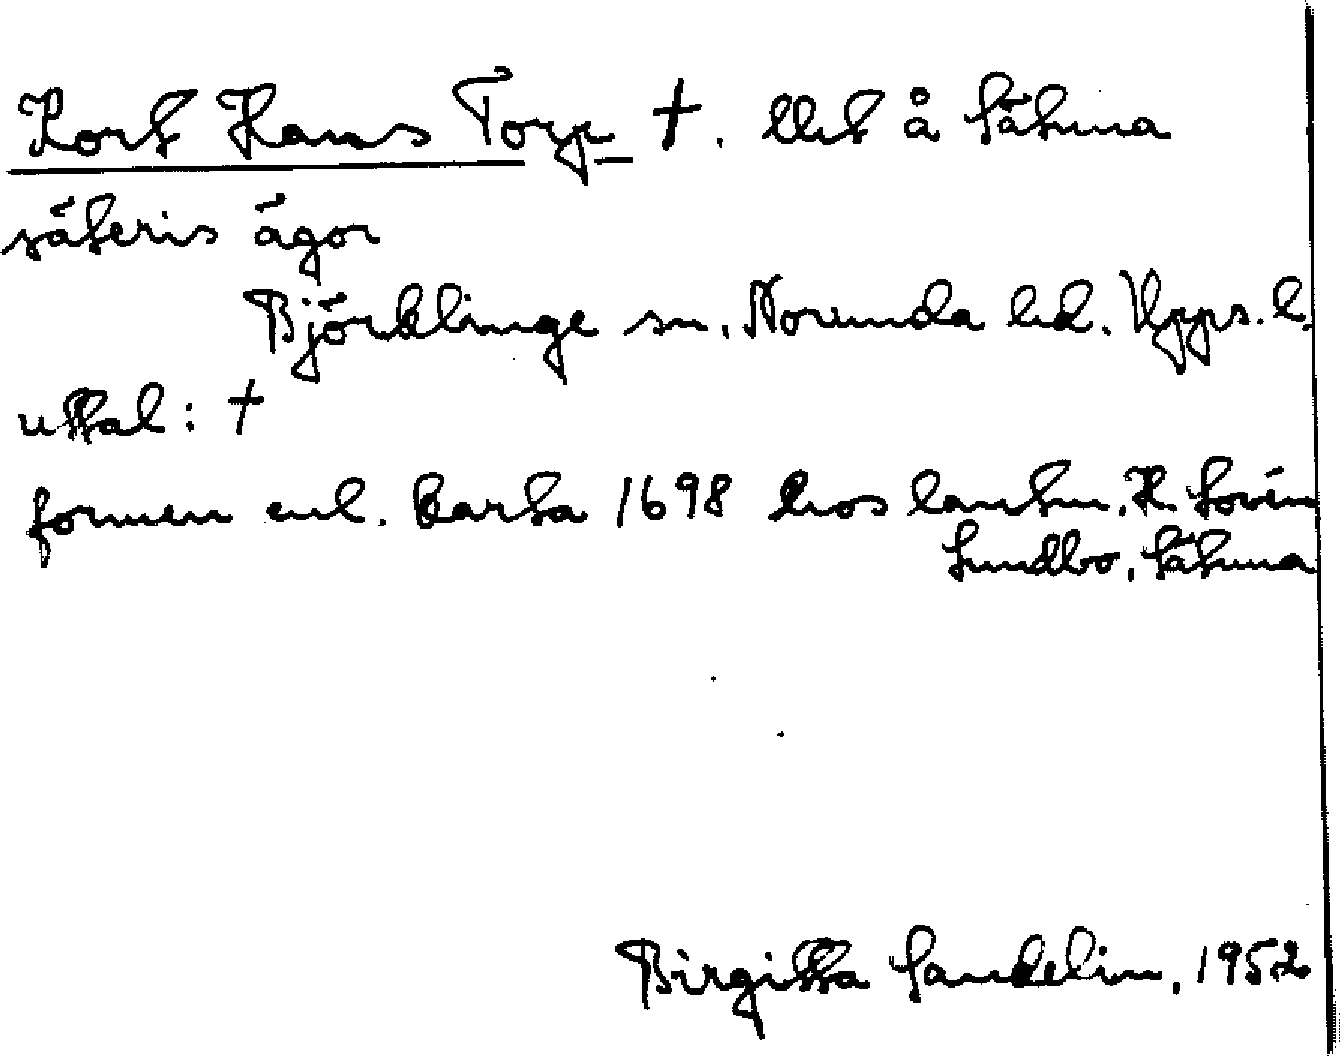 Kort Hans Torp †. Utl å Sätuna
säteris ägor
Björklinge sn. Norunda hd. Upps. l.
uttal: †
formen enl. karta 1698 hos lantbr. K. Lovén
Lundbo, Sätuna
Birgitta Sandelin, 1952